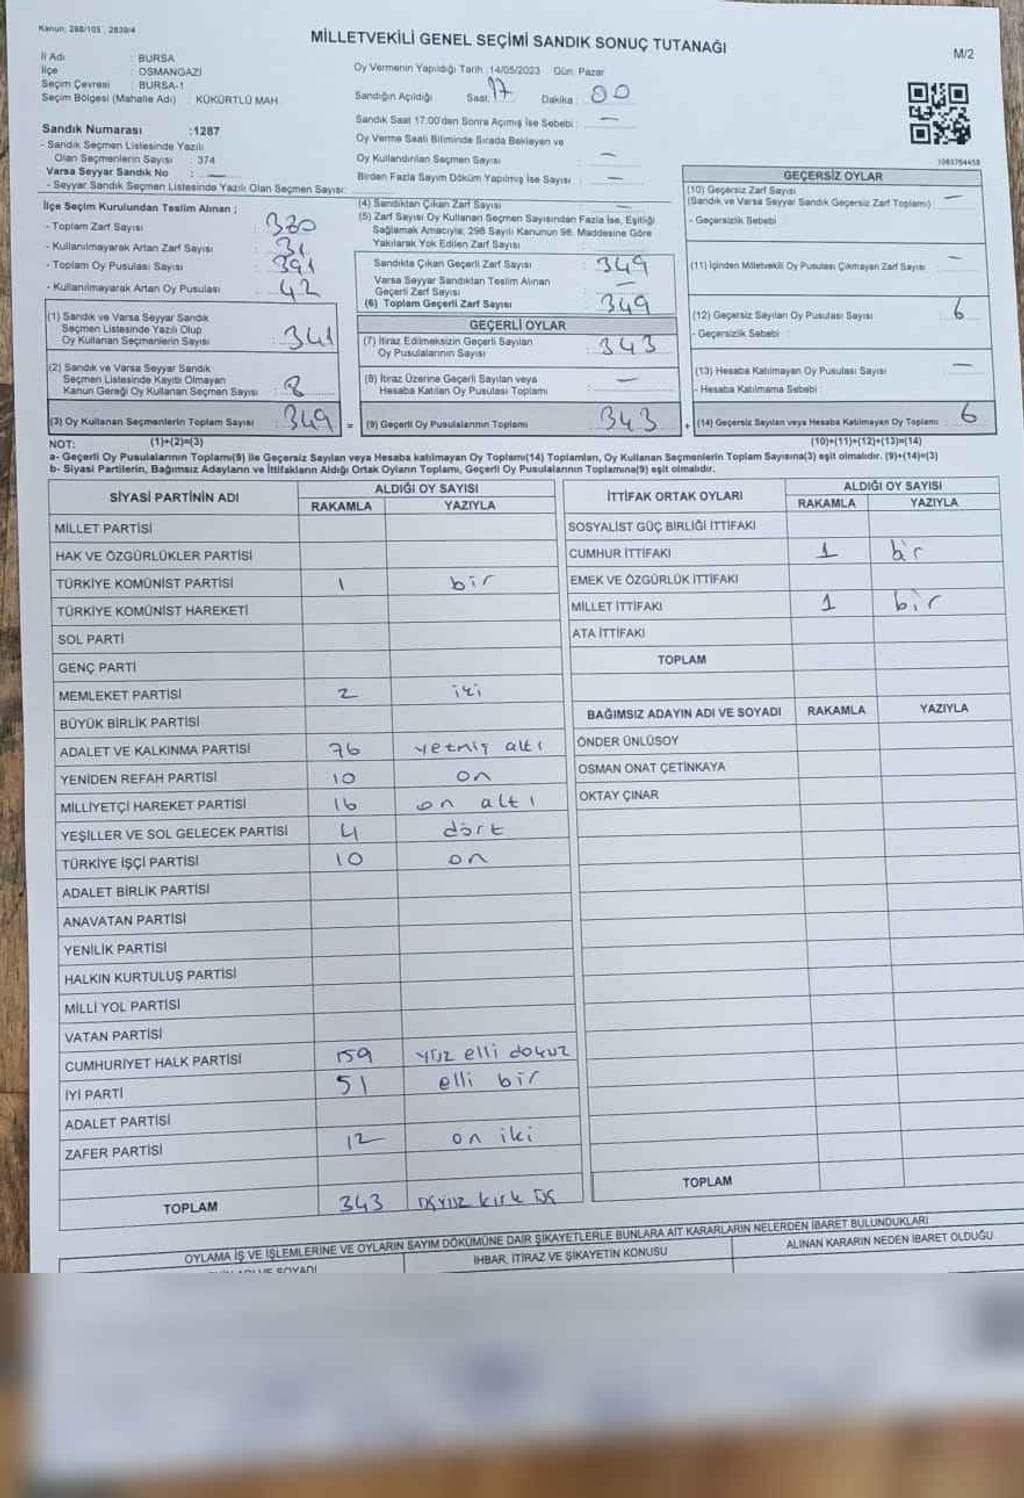 Kanun: 298/105 , 2839/4
MİLLETVEKİLİ GENEL SEÇİMİ SANDIK SONUÇ TUTANAĞI
M/2
İl Adı : BURSA
İlçe : OSMANGAZİ
Seçim Çevresi : BURSA-1
Seçim Bölgesi (Mahalle Adı) : KÜKÜRTLÜ MAH.
Sandık Numarası :1287
- Sandık Seçmen Listesinde Yazılı
Olan Seçmenlerin Sayısı : 374
Varsa Seyyar Sandık No : —
- Seyyar Sandık Seçmen Listesinde Yazılı Olan Seçmen Sayısı:
Oy Vermenin Yapıldığı Tarih :14/05/2023 Gün: Pazar
Sandığın Açıldığı Saat: 17 Dakika : 00
Sandık Saat 17:00'den Sonra Açımış İse Sebebi : —
Oy Verme Saati Bitiminde Sırada Bekleyen ve
Oy Kullandırılan Seçmen Sayısı : —
Birden Fazla Sayım Döküm Yapılmış İse Sayısı : —
1083764458
İlçe Seçim Kurulundan Teslim Alınan ;
- Toplam Zarf Sayısı : 380
- Kullanılmayarak Artan Zarf Sayısı : 31
- Toplam Oy Pusulası Sayısı : 391
- Kullanılmayarak Artan Oy Pusulası : 42
(1) Sandık ve Varsa Seyyar Sandık
Seçmen Listesinde Yazılı Olup
Oy Kullanan Seçmenlerin Sayısı : 341
(2) Sandık ve Varsa Seyyar Sandık
Seçmen Listesinde Kayıtlı Olmayan
Kanun Gereği Oy Kullanan Seçmen Sayısı : 8
(3) Oy Kullanan Seçmenlerin Toplam Sayısı : 349 =
(4) Sandıktan Çıkan Zarf Sayısı : —
(5) Zarf Sayısı Oy Kullanan Seçmen Sayısından Fazla İse, Eşitliği
Sağlamak Amacıyla; 298 Sayılı Kanunun 98. Maddesine Göre
Yakılarak Yok Edilen Zarf Sayısı :
Sandıkta Çıkan Geçerli Zarf Sayısı : 349
Varsa Seyyar Sandıktan Teslim Alınan
Geçerli Zarf Sayısı : —
(6) Toplam Geçerli Zarf Sayısı : 349
GEÇERLİ OYLAR
(7) İtiraz Edilmeksizin Geçerli Sayılan
Oy Pusulalarının Sayısı : 343
(8) İtiraz Üzerine Geçerli Sayılan veya
Hesaba Katılan Oy Pusulası Toplamı : —
(9) Geçerli Oy Pusulalarının Toplamı : 343 +
GEÇERSİZ OYLAR
(10) Geçersiz Zarf Sayısı
(Sandık ve Varsa Seyyar Sandık Geçersiz Zarf Toplamı) : —
- Geçersizlik Sebebi :
(11) İçinden Milletvekili Oy Pusulası Çıkmayan Zarf Sayısı : —
(12) Geçersiz Sayılan Oy Pusulası Sayısı : 6
- Geçersizlik Sebebi :
(13) Hesaba Katılmayan Oy Pusulası Sayısı : —
- Hesaba Katılmama Sebebi :
(14) Geçersiz Sayılan veya Hesaba Katılmayan Oy Toplamı : 6
NOT: (1)+(2)=(3) (10)+(11)+(12)+(13)=(14)
a- Geçerli Oy Pusulalarının Toplamı(9) ile Geçersiz Sayılan veya Hesaba katılmayan Oy Toplamı(14) Toplamları, Oy Kullanan Seçmenlerin Toplam Sayısına(3) eşit olmalıdır. (9)+(14)=(3)
b- Siyasi Partilerin, Bağımsız Adayların ve İttifakların Aldığı Ortak Oyların Toplamı, Geçerli Oy Pusulalarının Toplamına(9) eşit olmalıdır.
SİYASİ PARTİNİN ADI ALDIĞI OY SAYISI
RAKAMLA YAZIYLA
MİLLET PARTİSİ
HAK VE ÖZGÜRLÜKLER PARTİSİ
TÜRKİYE KOMÜNİST PARTİSİ 1 bir
TÜRKİYE KOMÜNİST HAREKETİ
SOL PARTİ
GENÇ PARTİ
MEMLEKET PARTİSİ 2 iki
BÜYÜK BİRLİK PARTİSİ
ADALET VE KALKINMA PARTİSİ 76 yetmiş altı
YENİDEN REFAH PARTİSİ 10 on
MİLLİYETÇİ HAREKET PARTİSİ 16 on altı
YEŞİLLER VE SOL GELECEK PARTİSİ 4 dört
TÜRKİYE İŞÇİ PARTİSİ 10 on
ADALET BİRLİK PARTİSİ
ANAVATAN PARTİSİ
YENİLİK PARTİSİ
HALKIN KURTULUŞ PARTİSİ
MİLLİ YOL PARTİSİ
VATAN PARTİSİ
CUMHURİYET HALK PARTİSİ 159 yüz elli dokuz
İYİ PARTİ 51 elli bir
ADALET PARTİSİ
ZAFER PARTİSİ 12 on iki
TOPLAM 343 üçyüz kırk üç
İTTİFAK ORTAK OYLARI ALDIĞI OY SAYISI
RAKAMLA YAZIYLA
SOSYALİST GÜÇ BİRLİĞİ İTTİFAKI
CUMHUR İTTİFAKI 1 bir
EMEK VE ÖZGÜRLÜK İTTİFAKI
MİLLET İTTİFAKI 1 bir
ATA İTTİFAKI
TOPLAM
BAĞIMSIZ ADAYIN ADI VE SOYADI RAKAMLA YAZIYLA
ÖNDER ÜNLÜSOY
OSMAN ONAT ÇETİNKAYA
OKTAY ÇINAR
TOPLAM
OYLAMA İŞ VE İŞLEMLERİNE VE OYLARIN SAYIM DÖKÜMÜNE DAİR ŞİKAYETLERLE BUNLARA AİT KARARLARIN NELERDEN İBARET BULUNDUKLARI
İHBAR, İTİRAZ VE ŞİKAYETİN KONUSU
ALINAN KARARIN NEDEN İBARET OLDUĞU